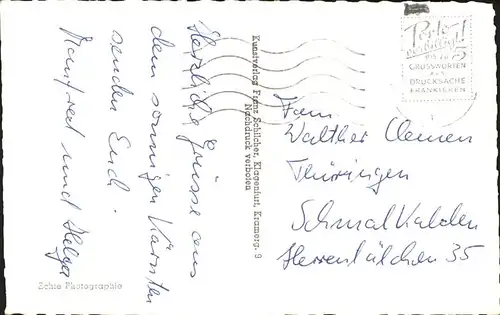 Herzliche Grüsse aus
dem sonnigen Kärnten
senden Euch
Manfred und Helga
Echte Photographie
Kunstverlag Franz Schilcher, Klagenfurt, Kramerg. 9
Nachdruck verboten
Porto
verbilligt!
bis zu 5
GRUSSWORTEN
ALS
DRUCKSACHE
FRANKIEREN
Fam
Walther Clemen
Thüringen
Schmalkalden
Herrentälchen 35